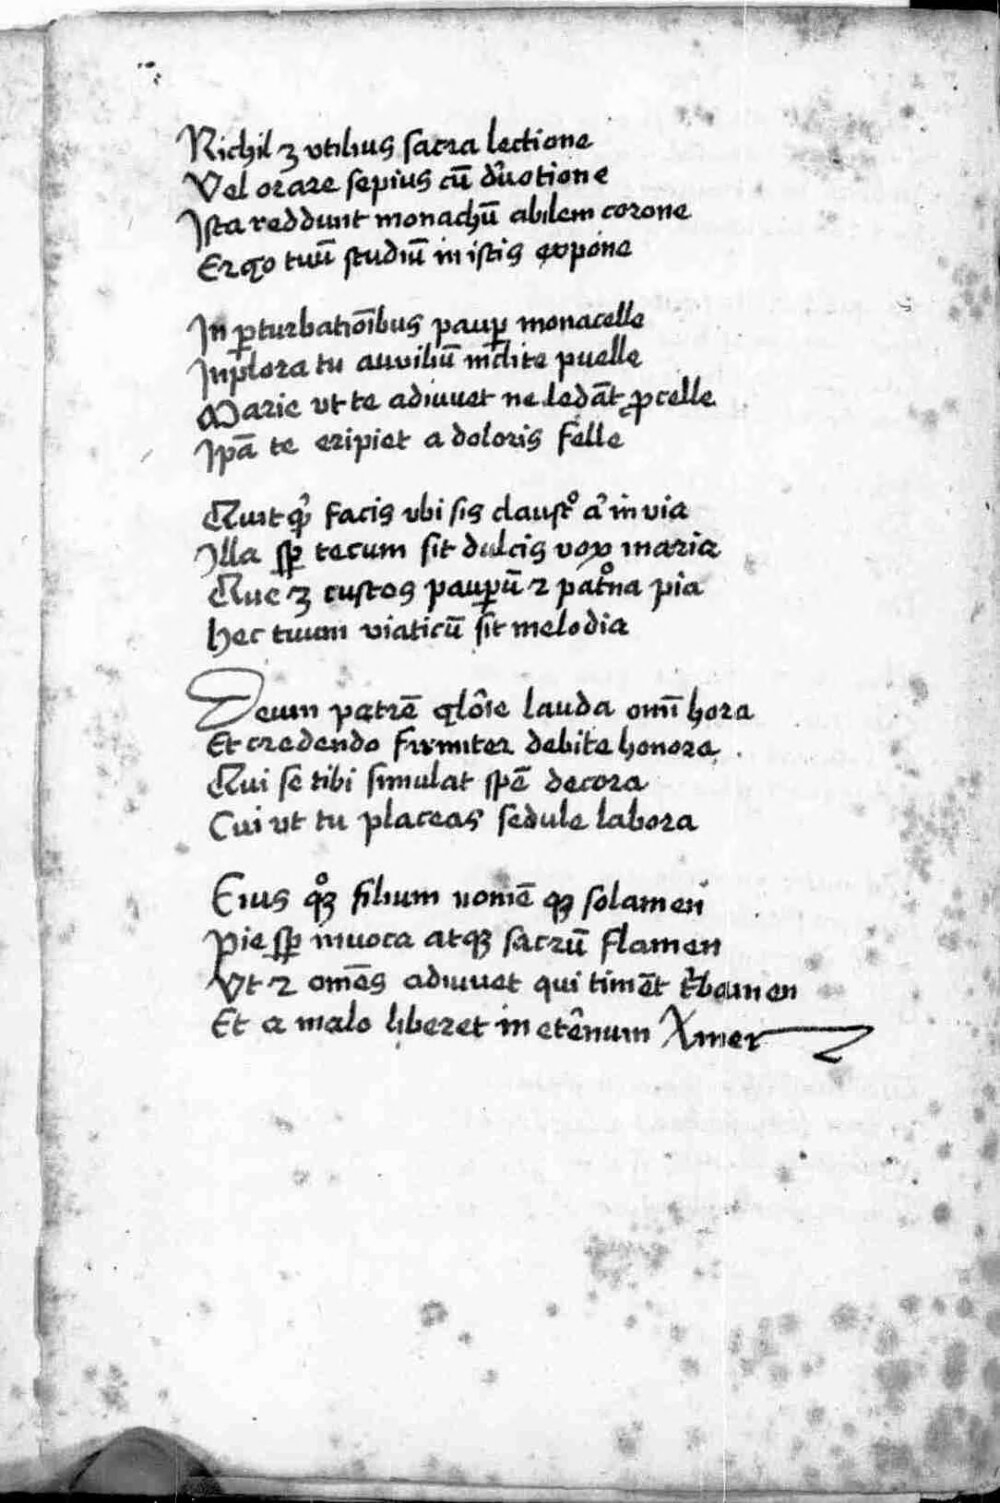 Nichil ʒ vtilius sacra lectione
Vel orare sepius cū deuotione
Ista reddunt monachū abilem corone
Ergo tuū studiū in istis expone
In ꝑturbatiōibus pauꝑ monacelle
Inplora tu auxiliū īclite puelle
Marie ut te adiuuet ne ledāt ꝓcelle
Ipā te eripiet a doloris felle
Quitqͥd facis ubi sis claustͦ aͭ in via
Illa sꝑ tecum sit dulcis vox maria
Que ʒ custos pauꝑū ⁊ patͦna pia
Hec tuum viaticū sit melodia
Deum patrē glôie lauda omī hora
Et credendo firmiter debite honora
Qui se tibi simulat spē decora
Cui ut tu placeas sedule labora
Eius qͦꝫ filium nomē qꝫ solamen
Pie sꝑ inuoca atqꝫ sacrū flamen
Vt ⁊ omēs adiuuet qui timēt
Et a malo liberet in etênum Amen